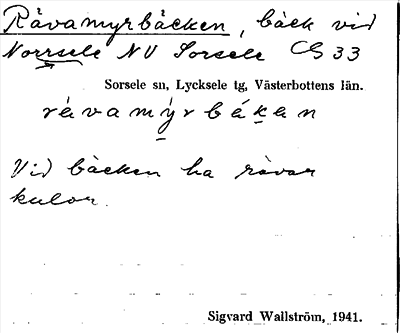 Rävamyrbäcken, bäck vid
Norrsele NV Sorsele C8 33
Sorsele sn, Lycksele tg, Västerbottens län.
rävamýrbäḵan
Vid bäcken ha rävar
kulor.
Sigvard Wallström, 1941.